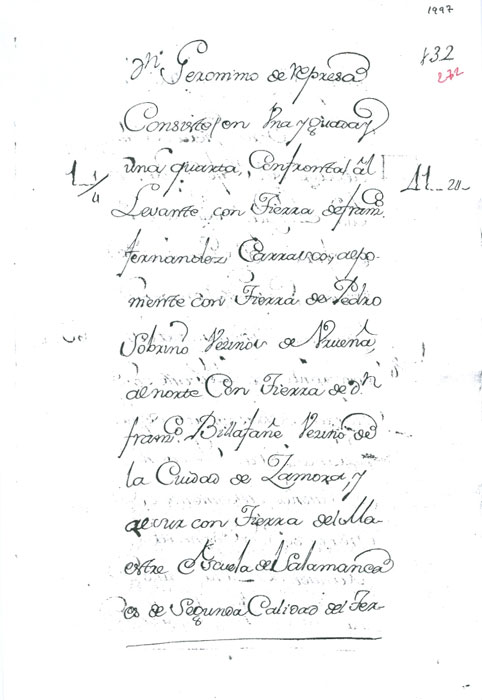 1997
132
272
Dn. Geronimo de represa
Consiste en Una yguada y
una quarta, Confronta al
1 1/4
11
Levante con Tierra de franco.
fernandez Carrasco, al po-
niente con Tierra de Pedro
Sobrino Vezinos de Urueña,
al norte Con Tierra de Dn
franco. Billafañe Vezino de
la Ciudad de Zamora, y
al sur con Tierra del Ma-
estre Escuela de Salamanca
es de Segunda Calidad del Ter-